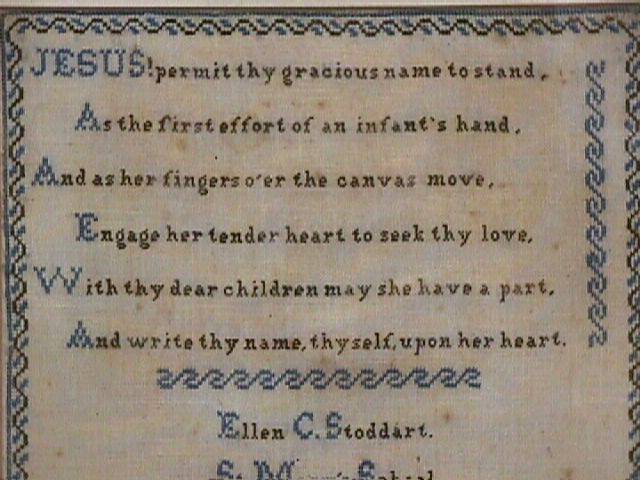 JESUS! permit thy gracious name to stand,
As the first effort of an infant's hand,
And as her fingers o'er the canvas move,
Engage her tender heart to seek thy love,
With thy dear children may she have a part,
And write thy name, thyself, upon her heart.
Ellen C. Stoddart.
St